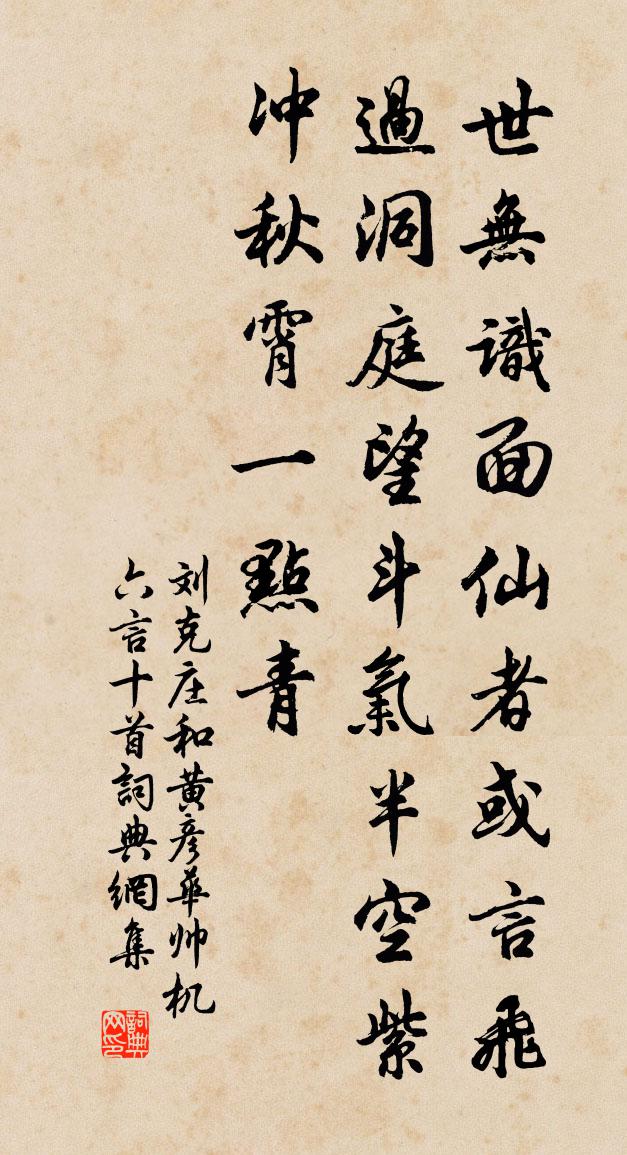 世無識面仙者或言飛
過洞庭望斗氣半空紫
冲秋霄一點青
刘克庄和黄彦華帅机
六言十首詞典網集
詞典
网印